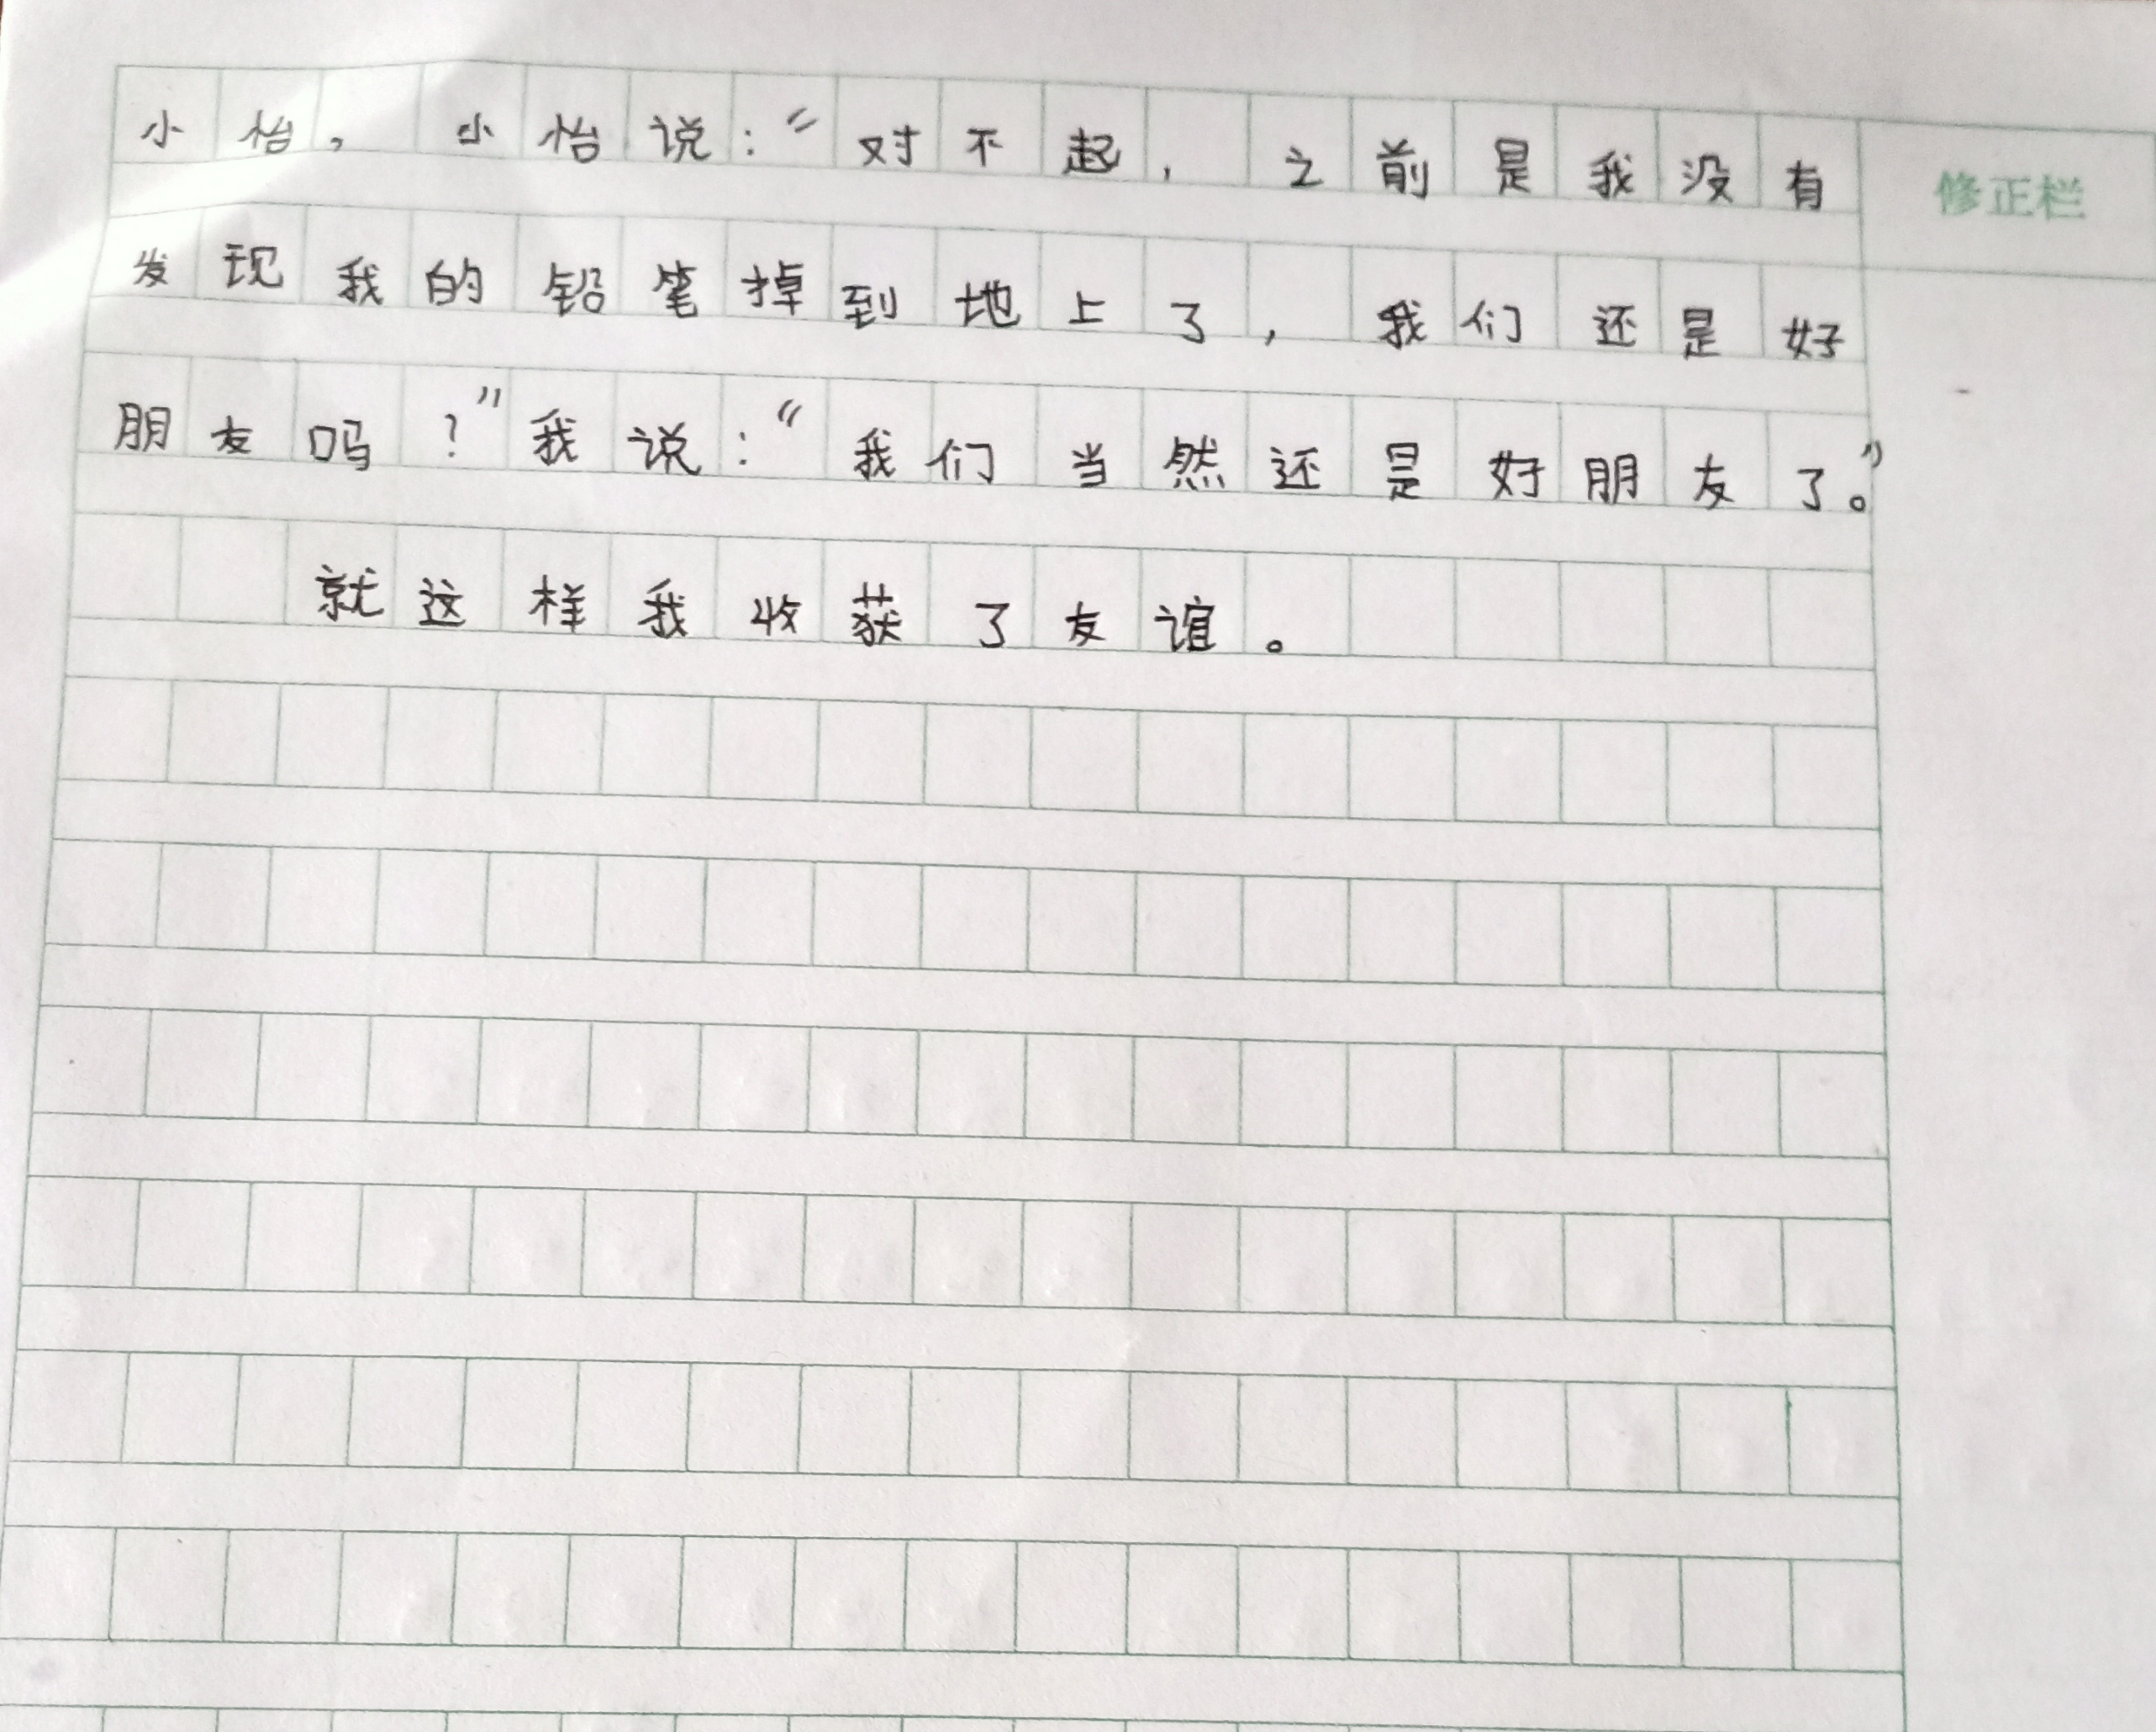 小怡，小怡说：“对不起，之前是我没有
修正栏
发现我的铅笔掉到地上了，我们还是好
朋友吗？”我说：“我们当然还是好朋友了。”
就这样我收获了友谊。